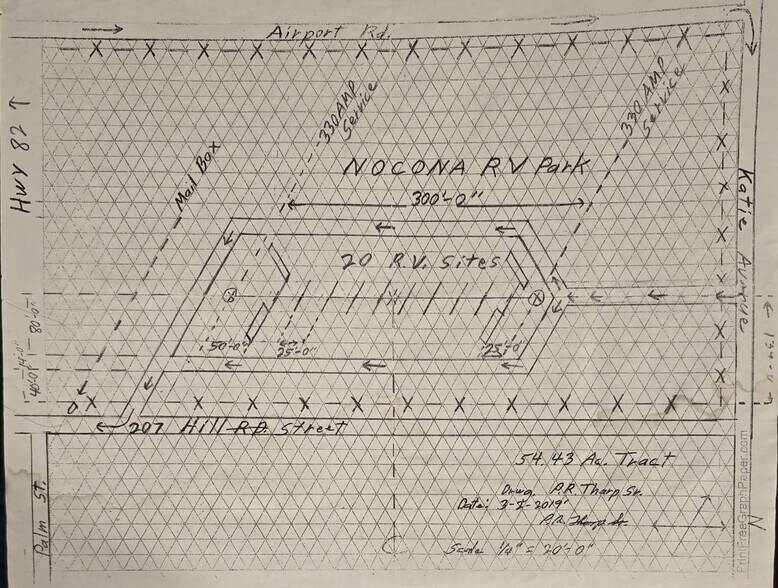 Airport Rd.
HWY 82
330 AMP
Service
330 AMP
Service
Mail Box
NOCONA RV Park
300'-0"
Katie Avenue
20 R.V. Sites
50'-0"
25'-0"
25'-0"
80'-0"
14'-0"
40'-0"
134'-0"
207 Hill RD. Street
Palm St.
54.43 Ac. Tract
Drwg. P.R. Tharp Sr.
Date: 3-2-2019
P.R. Tharp Sr.
Scale 1/4" = 20'-0"
N
PrintFreeGraphPaper.com